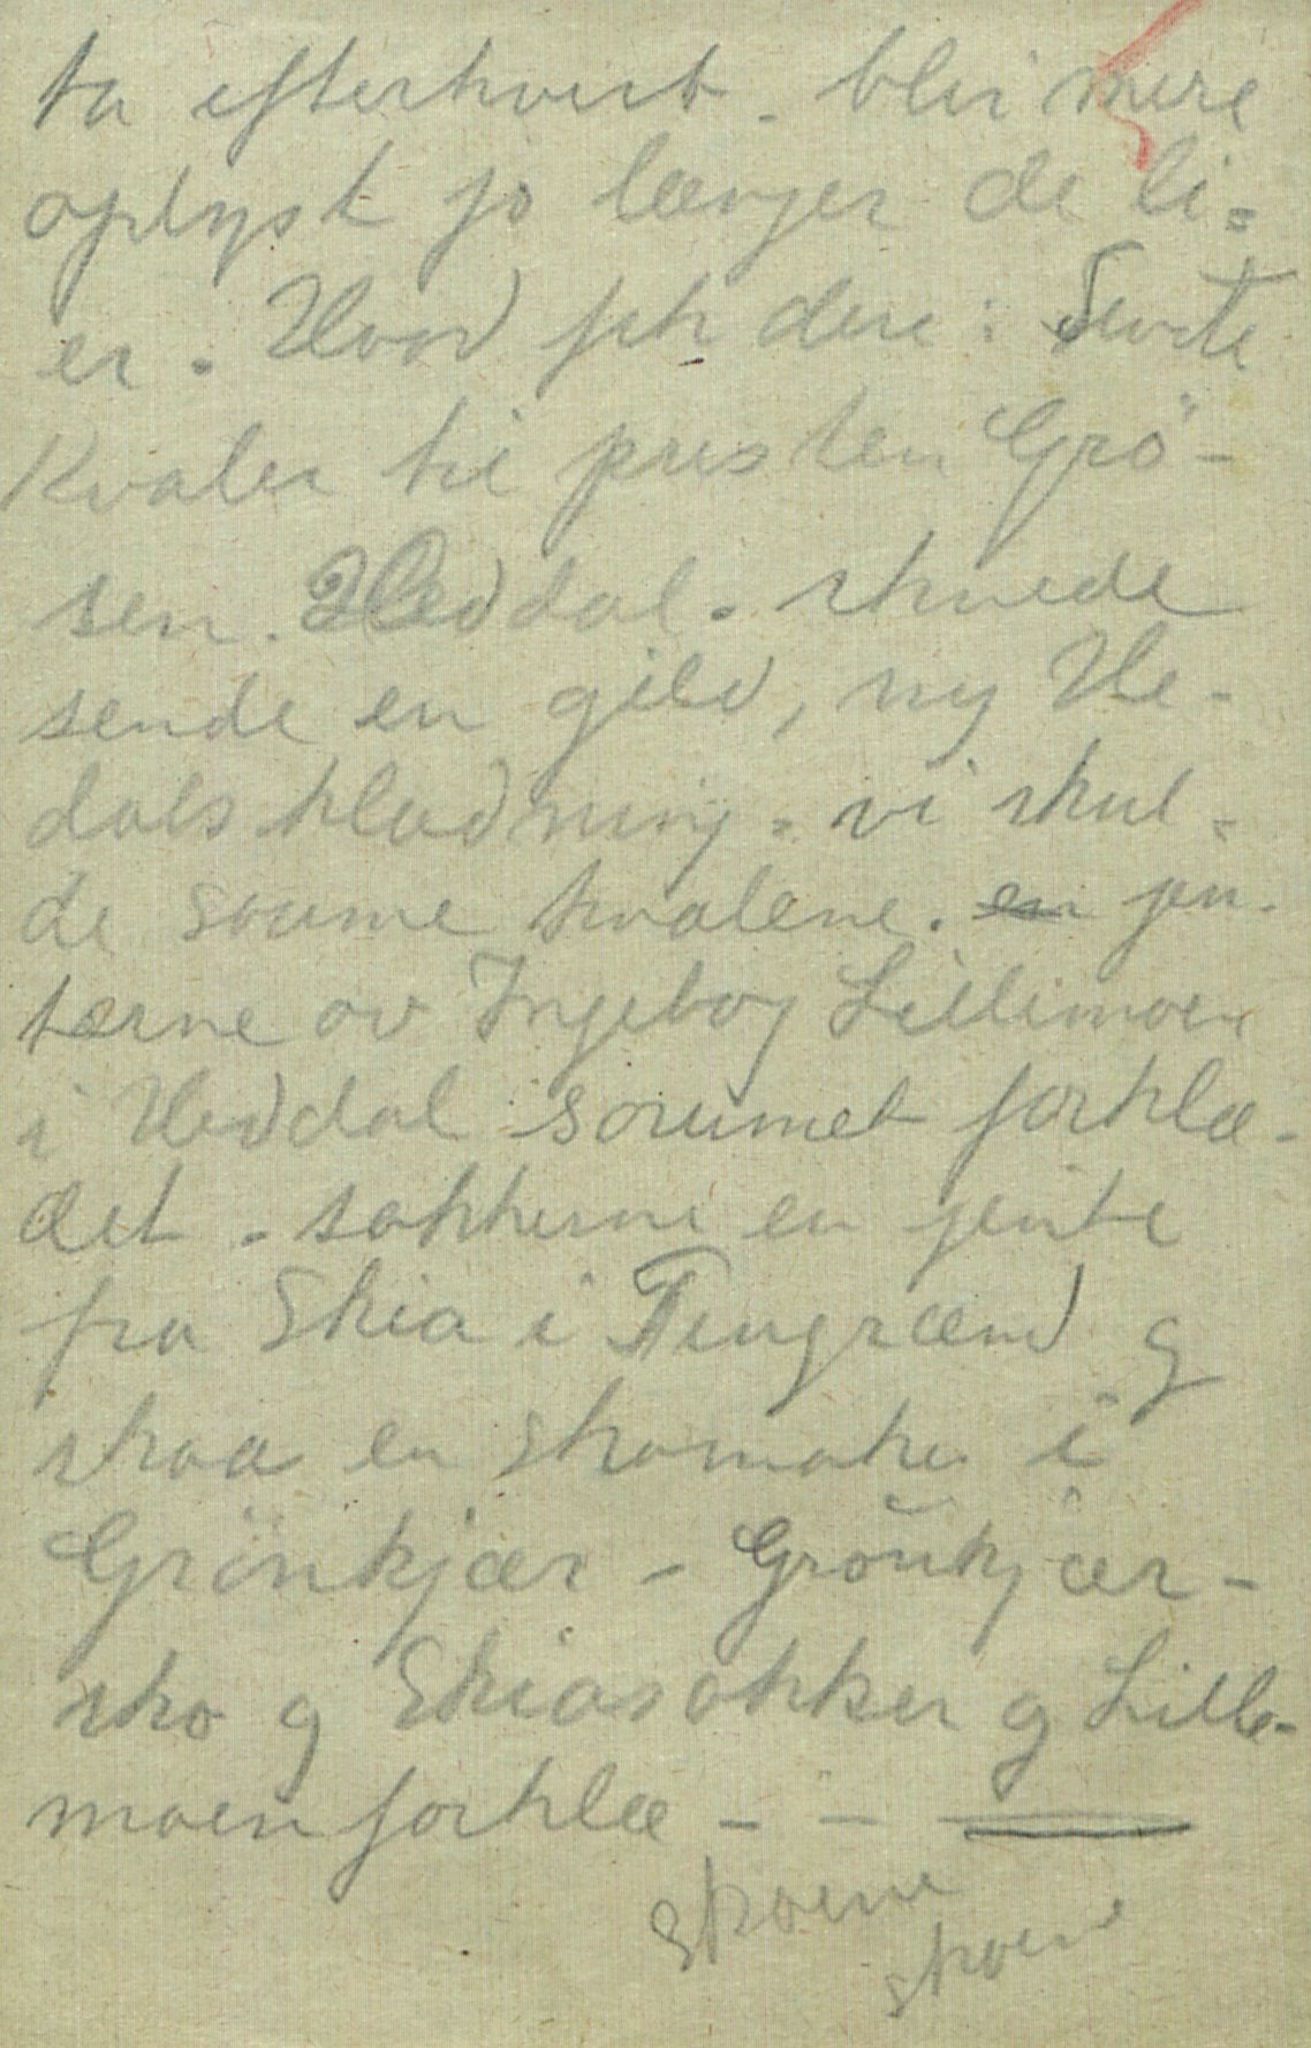 ta efterhvert. blir mere
oplyst jo længer de li-
er. Hvad fik dere:
Kvaler til presten Grö-
sen. Heddal. skrede
sende en gild, ny He-
dals kladning. vi skul-
de saume kvalene. en jen-
tærne av Ingebog Lillimoen
i Heddal saumet forklæ-
det. sokkerne en jente
fra Skia i Tingrænd g
skoa en skomaker i
Grönkjær - Grönkjær-
sko g Skiasokker g Lille-
moen forklæ - - -
skoene
skoene